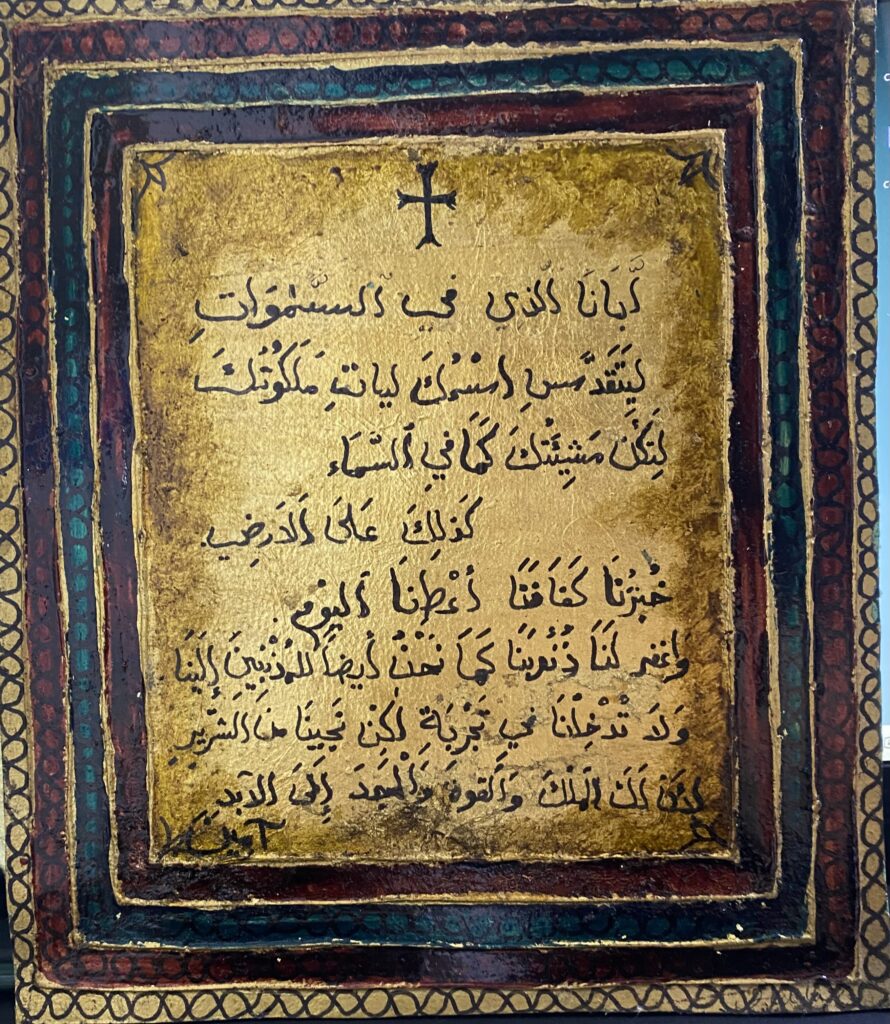 أَبَانَا الَّذِي فِي السَّمٰوَاتِ
لِيَتَقَدَّسِ اسْمُكَ لِيَاتِ مَلَكُوتُكَ
لِتَكُنْ مَشِيئَتُكَ كَمَا فِي السَّمَاءِ
كَذٰلِكَ عَلَى الْاَرْضِ.
خُبْزُنَا كَفَافَنَا أَعْطِنَا الْيَوْم
وَاغْفِر لَنَا ذُنُوبَنَا كَمَا نَحْنُ أَيضًا لِلْمُذْنِبِينَ إِلَيْنَا.
وَلَا تُدْخِلْنَا فِي تَجْرِبَةٍ لٰكِنْ نَجِينَا منَ الشِّرِّيرِ
لِأَنَّ لَكَ الْمُلْكَ وَالْقُوةَ وَالْمَجدَ إِلَى الْأَبَدِ
آمين